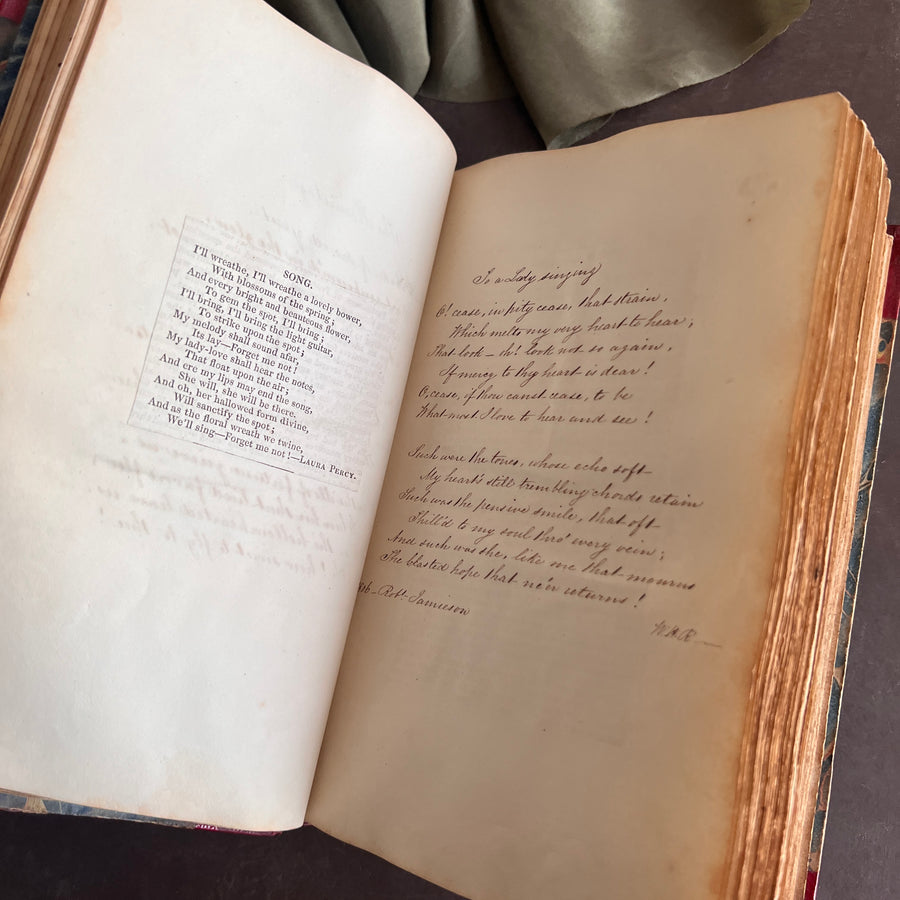 SONG.
I'll wreathe, I'll wreathe a lovely bower,
With blossoms of the spring;
And every bright and beauteous flower,
To gem the spot, I'll bring;
I'll bring, I'll bring the light guitar,
To strike upon the spot;
My melody shall sound afar,
My lay—Forget me not!
My lady-love shall hear the notes,
That float upon the air;
And ere my lips may end the song,
She will, she will be there.
And oh, her hallowed form divine,
Will sanctify the spot;
And as the floral wreath we twine,
We'll sing—Forget me not!—LAURA PERCY.
To a Lady singing
O! cease, in pity cease, that strain,
Which melts my very heart to hear;
That look – oh! look not so again,
If mercy to thy heart is dear!
O, cease, if thou canst cease, to be
What most I love to hear and see!
Such were the tones, whose echo soft
My heart's still trembling chords retain
Such was the pensive smile, that oft
Thrill'd to my soul thro' every vein;
And such was she, like me that mourns
The blasted hope that ne'er returns!
Robt. Jamieson
W.H.R